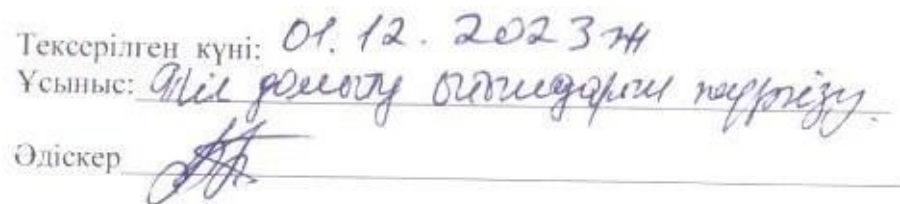 Тексерілген күні: 01.12.2023ж
Ұсыныс: Тіл дамыту ойындарын жүргізу.
Әдіскер